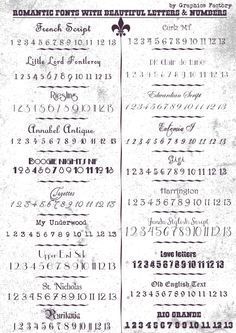 by Graphics Factory
ROMANTIC FONTS WITH BEAUTIFUL LETTERS & NUMBERS
French Script
1 2 3 4 5 6 7 8 9 10 11 12 13
Little Lord Fontleroy
1 2 3 4 5 6 7 8 9 10 11 12 13
Riesling
1 2 3 4 5 6 7 8 9 10 11 12 13
Annabel Antique
1 2 3 4 5 6 7 8 9 10 11 12 13
BOOGIE NIGHTS NF
1 2 3 4 5 6 7 8 9 10 11 12 13
1 2 3 4 5 6 7 8 9 10 11 12 13
My Underwood
1 2 3 4 5 6 7 8 9 10 11 12 13
Upper East Side
1 2 3 4 5 6 7 8 9 10 11 12 13
St. Nicholas
1 2 3 4 5 6 7 8 9 10 11 12 13
Ruritania
1 2 3 4 5 6 7 8 9 10 11 12 13
Curlz MT
1 2 3 4 5 6 7 8 9 10 11 12 13
1 2 3 4 5 6 7 8 9 10 11 12 13
Edwardian Script
1 2 3 4 5 6 7 8 9 10 11 12 13
1 2 3 4 5 6 7 8 9 10 11 12 13
Gigi
1 2 3 4 5 6 7 8 9 10 11 12 13
Harrington
1 2 3 4 5 6 7 8 9 10 11 12 13
Script
1 2 3 4 5 6 7 8 9 10 11 12 13
Love letters
1 2 3 4 5 6 7 8 9 10 11 12 13
Old English Text
1 2 3 4 5 6 7 8 9 10 11 12 13
RIO GRANDE
1 2 3 4 5 6 7 8 9 10 11 12 13